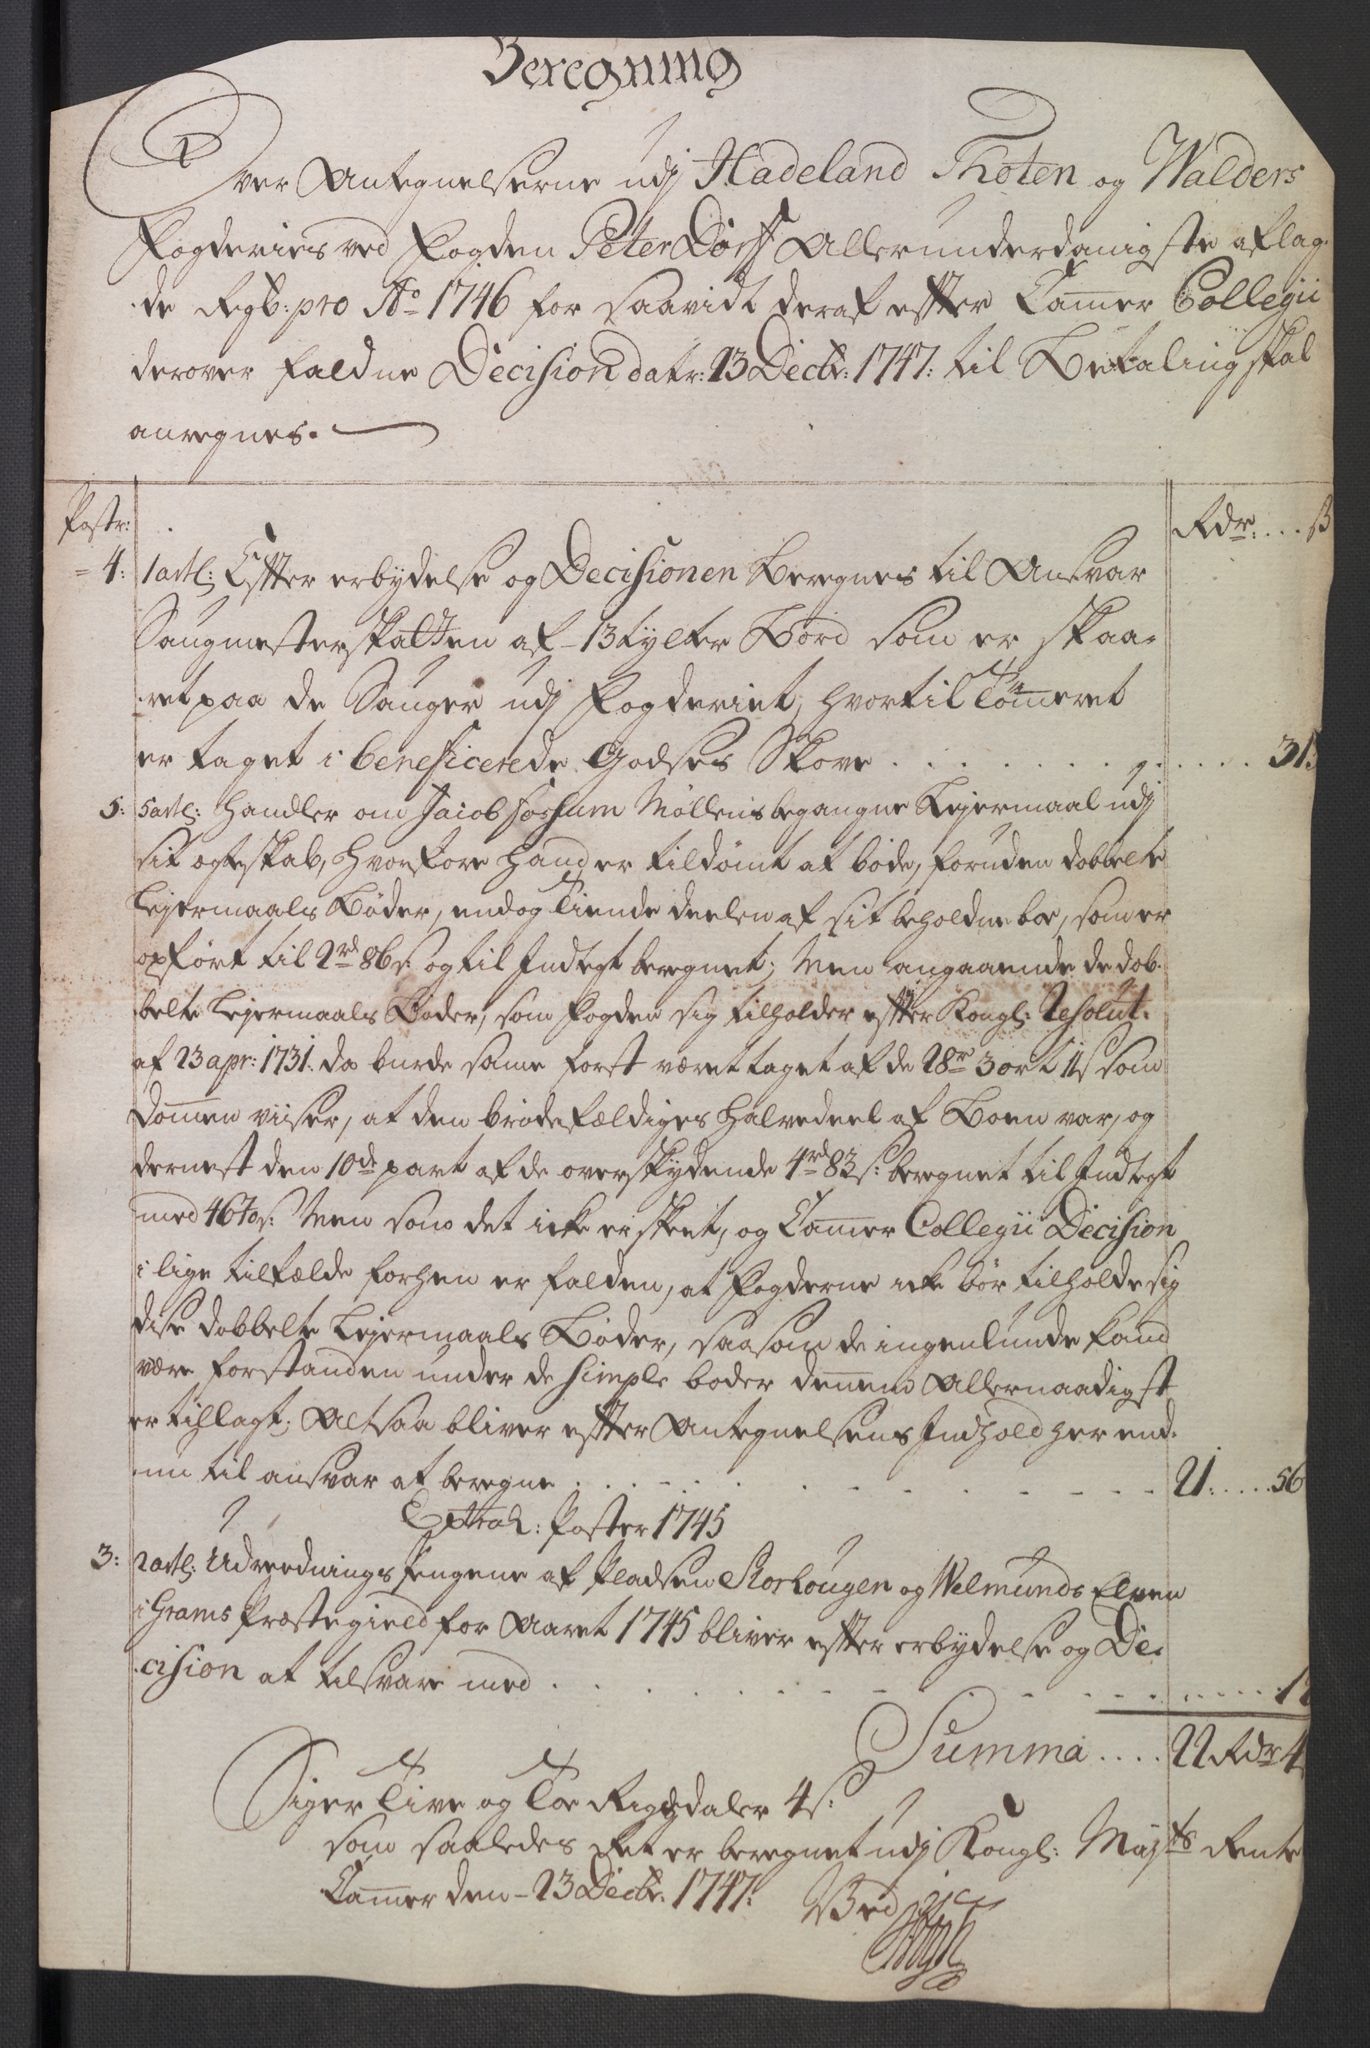 Beregning
Over Antegnelserne udj Hadeland Thoten og Walders
Fogderies ved Fogden Peter Dorff Allerunderdanigste aflag-
de Regb: pro Ao 1746 for saavidt deraf effter Camer Collegii
derover faldne Decision datr: 23 Decbr: 1747: til Betaling skal
anregnes.
Postr: Rdr: ... ß
4: 1 artl: Effter erbydelse og Decisionen beregnes til Ansvar
Saugmesterskatten af 13 tylter Bord som er skaa-
ret paa de Sauger udj Fogderiet, hvortil Tømeret
er taget i beneficerede Godses Skove . . . . . . 31
5: 5 artl: handler om Jacob Fossum Møllens begangne Lejermaal udj
sit ogteskab, hvorfore hand er tildømt at bøde, foruden dobbelte
Lejermaals Bøder, endog Tiende deelen af sit beholdne boe, som er
opført til 2rd 86s: og til Indtegt beregnet; Men angaaende de dob-
belte Lejermaals Bøder, som Fogden sig tilholder effter Kongl: Resolut:
af 23 apr: 1731. da burde same først været taget af de 28r 3 ort 11ß som
Domen viiser, at den brødefældiges halvedeel af Boen var, og
dernest den 10de part af de overskydende 4rd 83s: beregnet til Indtegt
med 46 7/10s: Men som det icke er skeet, og Camer Collegii Decision
i lige tilfælde forhen er falden, at Fogderne icke bør tilholde sig
dise dobbelte Lejermaals Bøder, saasom de ingenlunde kand
være forstanden under de simple bøder denem Allernaadigst
er tillagt; Altsaa bliver effter Antegnelsens Indhold her end-
nu til ansvar at beregne . . . . . . 21: . . . . 56
Extrah: Poster 1745
3: 2 artl: Udreednings Pengene af Pladsen Storhougen og Welmunds Elven
i Grams Præstegield for Aaret 1745 bliver effter erbydelse og De-
cision at tilsvare med . . . . . . 12
Summa .... 22 Rdr 4
Siger Tive og Toe Rigsdaler 4s:
som saaledes Ret er beregnet udj Kongl: Mayts Rente
Camer den 23 Decbr: 1747:
Ved